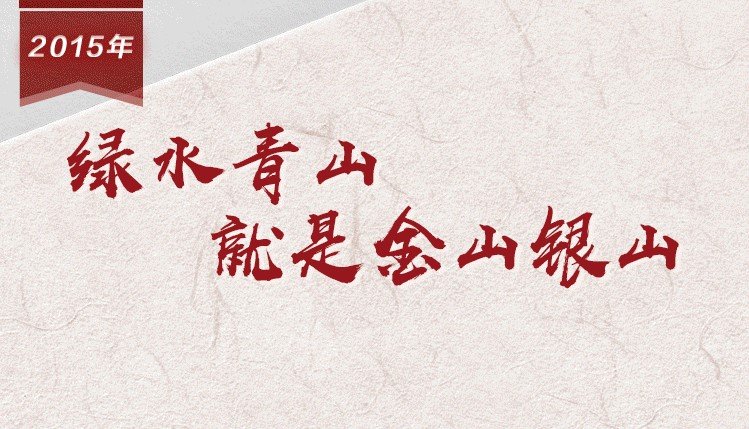 2015年
绿水青山
就是金山银山